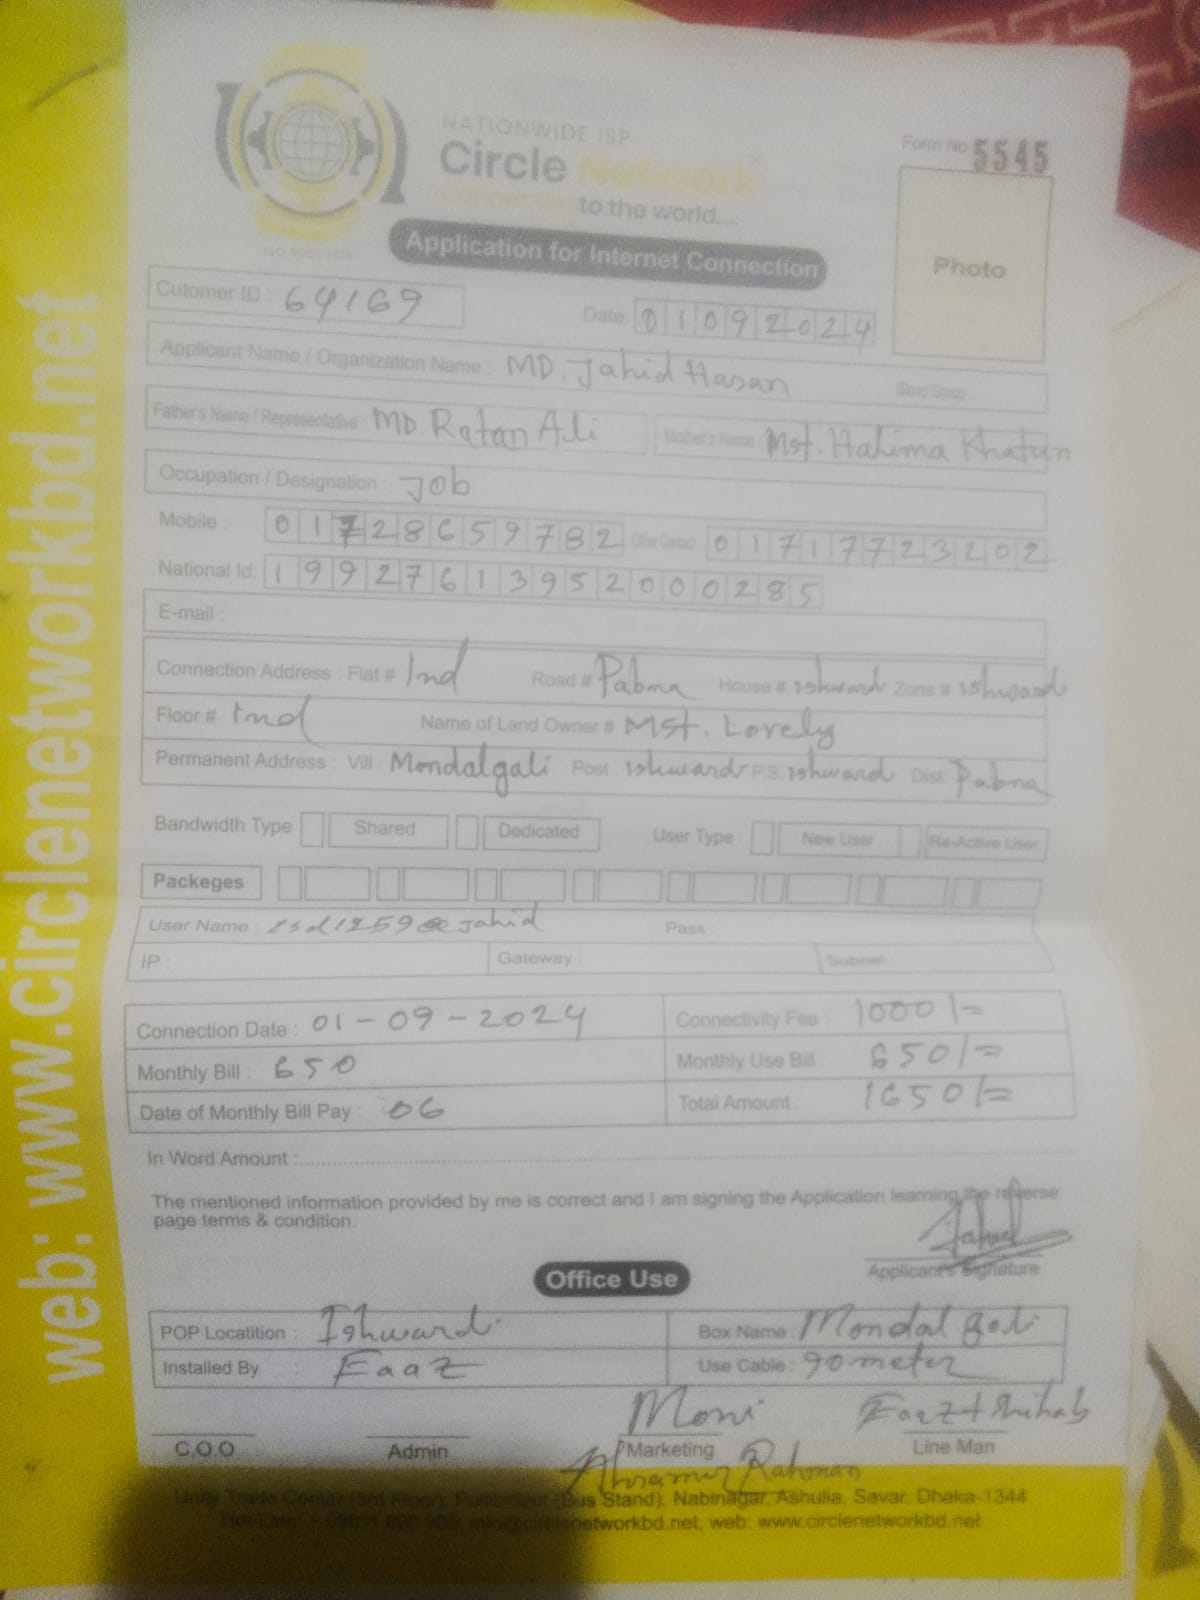 NATIONWIDE ISP
Circle Network
Connected to the world...
Form No 5545
Photo
Application for Internet Connection
Cutomer ID : 64169
Date: 01092024
Applicant Name / Organization Name : MD. Jahid Hasan
Blood Group :
Father's Name / Representative : MD. Ratan Ali
Mother's Name : Mst. Halima Khatun
Occupation / Designation : Job
Mobile : 01728659782 Other Contact: 01717723202
National Id: 19927613952000285
E-mail :
Connection Address : Flat # Ind Road # Pabna House # ishwardi Zone # ishwardi
Floor # Ind Name of Land Owner # Mst. Lovely
Permanent Address : Vill : Mondalgali Post : ishwardi P.S ishwardi Dist: Pabna
Bandwidth Type Shared Dedicated User Type : New User Re-Active User
Packeges
User Name : jahid Pass :
IP : Gateway : Subnet :
Connection Date : 01-09-2024 Connectivity Fee : 1000/=
Monthly Bill : 650 Monthly Use Bill : 650/=
Date of Monthly Bill Pay : 06 Total Amount : 1650/=
In Word Amount :
The mentioned information provided by me is correct and I am signing the Application learning the reverse
page terms & condition.
Jahid
Applicant's Signature
Office Use
POP Locatition : Ishwardi Box Name : Mondal gali
Installed By : Faaz Use Cable : 90 meter
Moni Faaz + Shihab
C.O.O Admin Marketing Line Man
Rahman
Unity Trade Center (3rd Floor), (Bus Stand), Nabinagar, Ashulia, Savar, Dhaka-1344
Hot-Line: info@circlenetworkbd.net, web: www.circlenetworkbd.net
web: www.circlenetworkbd.net